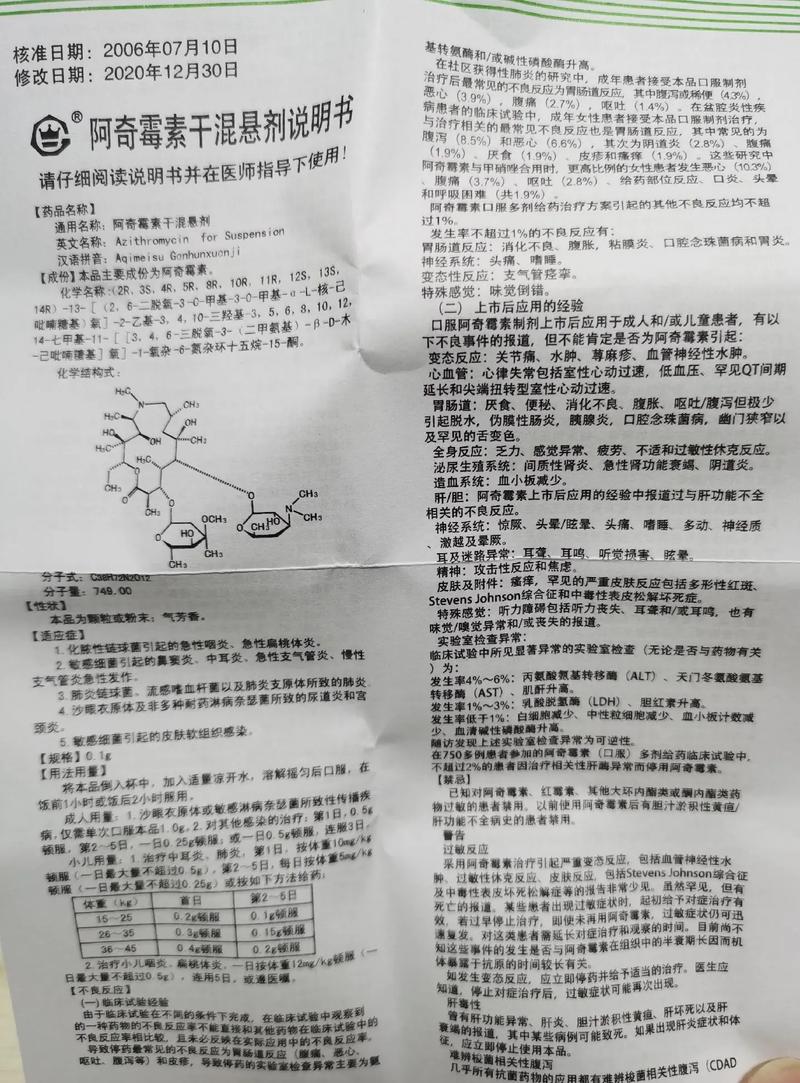 核准日期：2006年07月10日
修改日期：2020年12月30日
®
阿奇霉素干混悬剂说明书
请仔细阅读说明书并在医师指导下使用！
【药品名称】
通用名称：阿奇霉素干混悬剂
英文名称：Azithromycin for Suspension
汉语拼音：Aqimeisu Ganhunxuanji
【成份】本品主要成份为阿奇霉素。
化学名称：(2R, 3S, 4R, 5R, 8R, 10R, 11R, 12S, 13S,
14R)-13-[（2, 6-二脱氧-3-C-甲基-3-O-甲基-α-L-核-己
吡喃糖基）氧]-2-乙基-3, 4, 10-三羟基-3, 5, 6, 8, 10, 12,
14-七甲基-11-[[3, 4, 6-三脱氧-3-（二甲氨基）-β-D-木
-己吡喃糖基］氧]-1-氧杂-6-氮杂环十五烷-15-酮。
化学结构式：
H₃C
N
CH₃
H₃C
OH
HO
OH
CH₃
H₃C
CH₃
O
O
CH₃
O
O
OCH₃
CH₃
OH
CH₃
O
O
CH₃
HO
N
CH₃
H₃C
分子式：C38H72N2O12
分子量：749.00
【性状】
本品为颗粒或粉末；气芳香。
【适应症】
1. 化脓性链球菌引起的急性咽炎、急性扁桃体炎。
2. 敏感细菌引起的鼻窦炎、中耳炎、急性支气管炎、慢性
支气管炎急性发作。
3. 肺炎链球菌、流感嗜血杆菌以及肺炎支原体所致的肺炎。
4. 沙眼衣原体及非多种耐药淋病奈瑟菌所致的尿道炎和宫
颈炎。
5. 敏感细菌引起的皮肤软组织感染。
【规格】0.1g
【用法用量】
将本品倒入杯中，加入适量凉开水，溶解摇匀后口服，在
饭前1小时或饭后2小时服用。
成人用量：1. 沙眼衣原体或敏感淋病奈瑟菌所致性传播疾
病，仅需单次口服本品1.0g。2. 对其他感染的治疗：第1日，0.5g
顿服，第2～5日，一日0.25g顿服；或一日0.5g顿服，连服3日。
小儿用量：1. 治疗中耳炎、肺炎，第1日，按体重10mg/kg
顿服（一日最大量不超过0.5g），第2～5日，每日按体重5mg/kg
顿服（一日最大量不超过0.25g）或按如下方法给药：
体重（kg） 首日 第2～5日
15～25 0.2g顿服 0.1g顿服
26～35 0.3g顿服 0.15g顿服
36～45 0.4g顿服 0.2g顿服
2. 治疗小儿咽炎、扁桃体炎，一日按体重12mg/kg顿服（一
日最大量不超过0.5g），连用5日，或遵医嘱。
【不良反应】
(一) 临床试验经验
由于临床试验在不同的条件下完成，在临床试验中观察到
的一种药物的不良反应率不能直接和其他药物在临床试验中的
不良反应率相比较，且未必反映在实际应用中的不良反应率。
导致停药最常见的不良反应为胃肠道反应（腹痛、恶心、
呕吐、腹泻等）和皮疹，导致停药的实验室检查异常主要为氨
基转氨酶和/或碱性磷酸酶升高。
在社区获得性肺炎的研究中，成年患者接受本品口服制剂
治疗后最常见的不良反应为胃肠道反应，其中腹泻或稀便（4.3%），
恶心（3.9%），腹痛（2.7%），呕吐（1.4%）。在盆腔炎性疾
病患者的临床试验中，成年女性患者接受本品口服制剂治疗，
与治疗相关的最常见不良反应也是胃肠道反应，其中常见的为
腹泻（8.5%）和恶心（6.6%），其次为阴道炎（2.8%）、腹痛
（1.9%）、厌食（1.9%）、皮疹和瘙痒（1.9%）。这些研究中
阿奇霉素与甲硝唑合用时，更高比例的女性患者发生恶心（10.3%）
、腹痛（3.7%）、呕吐（2.8%）、给药部位反应、口炎、头晕
和呼吸困难（共1.9%）。
阿奇霉素口服多剂给药治疗方案引起的其他不良反应均不超
过1%。
发生率不超过1%的不良反应有：
胃肠道反应：消化不良、腹胀，粘膜炎、口腔念珠菌病和胃炎。
神经系统：头痛、嗜睡。
变态性反应：支气管痉挛。
特殊感觉：味觉倒错。
（二）上市后应用的经验
口服阿奇霉素制剂上市后应用于成人和/或儿童患者，有以
下不良事件的报道，但不能肯定是否为阿奇霉素引起：
变态反应：关节痛、水肿、荨麻疹、血管神经性水肿。
心血管：心律失常包括室性心动过速，低血压、罕见QT间期
延长和尖端扭转型室性心动过速。
胃肠道：厌食、便秘、消化不良、腹胀、呕吐/腹泻但极少
引起脱水，伪膜性肠炎，胰腺炎，口腔念珠菌病，幽门狭窄以
及罕见的舌变色。
全身反应：乏力、感觉异常、疲劳、不适和过敏性休克反应。
泌尿生殖系统：间质性肾炎、急性肾功能衰竭、阴道炎。
造血系统：血小板减少。
肝/胆：阿奇霉素上市后应用的经验中报道过与肝功能不全
相关的不良反应。
神经系统：惊厥、头晕/眩晕、头痛、嗜睡、多动、神经质
、激越及晕厥。
耳及迷路异常：耳聋、耳鸣、听觉损害、眩晕。
精神：攻击性反应和焦虑。
皮肤及附件：瘙痒，罕见的严重皮肤反应包括多形性红斑、
Stevens Johnson综合征和中毒性表皮松解坏死症。
特殊感觉：听力障碍包括听力丧失、耳聋和/或耳鸣，也有
味觉/嗅觉异常和/或丧失的报道。
实验室检查异常：
临床试验中所见显著异常的实验室检查（无论是否与药物有关
）为：
发生率4%～6%：丙氨酸氨基转移酶（ALT）、天门冬氨酸氨基
转移酶（AST）、肌酐升高。
发生率1%～3%：乳酸脱氢酶（LDH）、胆红素升高。
发生率低于1%：白细胞减少、中性粒细胞减少、血小板计数减
少、血清碱性磷酸酶升高。
随访发现上述实验室检查异常为可逆性。
在750多例患者参加的阿奇霉素（口服）多剂给药临床试验中，
不超过2%的患者因治疗相关性肝酶异常而停用阿奇霉素。
【禁忌】
已知对阿奇霉素、红霉素、其他大环内酯类或酮内酯类药
物过敏的患者禁用。以前使用阿奇霉素后有胆汁淤积性黄疸/
肝功能不全病史的患者禁用。
警告
过敏反应
采用阿奇霉素治疗引起严重变态反应，包括血管神经性水
肿、过敏性休克反应、皮肤反应，包括Stevens Johnson综合征
及中毒性表皮坏死松解症等的报告非常少见。虽然罕见，但有
死亡的报道。某些患者出现过敏症状时，起初给予对症治疗有
效，若过早停止治疗，即使未再用阿奇霉素，过敏症状仍可迅
速复发。对这类患者需延长对症治疗和观察的时间。目前尚不
知这些事件的发生是否与阿奇霉素在组织中的半衰期长因而机
体暴露于抗原的时间较长有关。
如发生变态反应，应立即停药并给予适当的治疗。医生应
知道，停止对症治疗后，过敏症状可能再次出现。
肝毒性
曾有肝功能异常、肝炎、胆汁淤积性黄疸、肝坏死以及肝
衰竭的报道，其中某些病例可能致死。如果出现肝炎症状和体
征，应立即停止使用本品。
难辨梭菌相关性腹泻
几乎所有抗菌药物的应用都有难辨梭菌相关性腹泻（CDAD